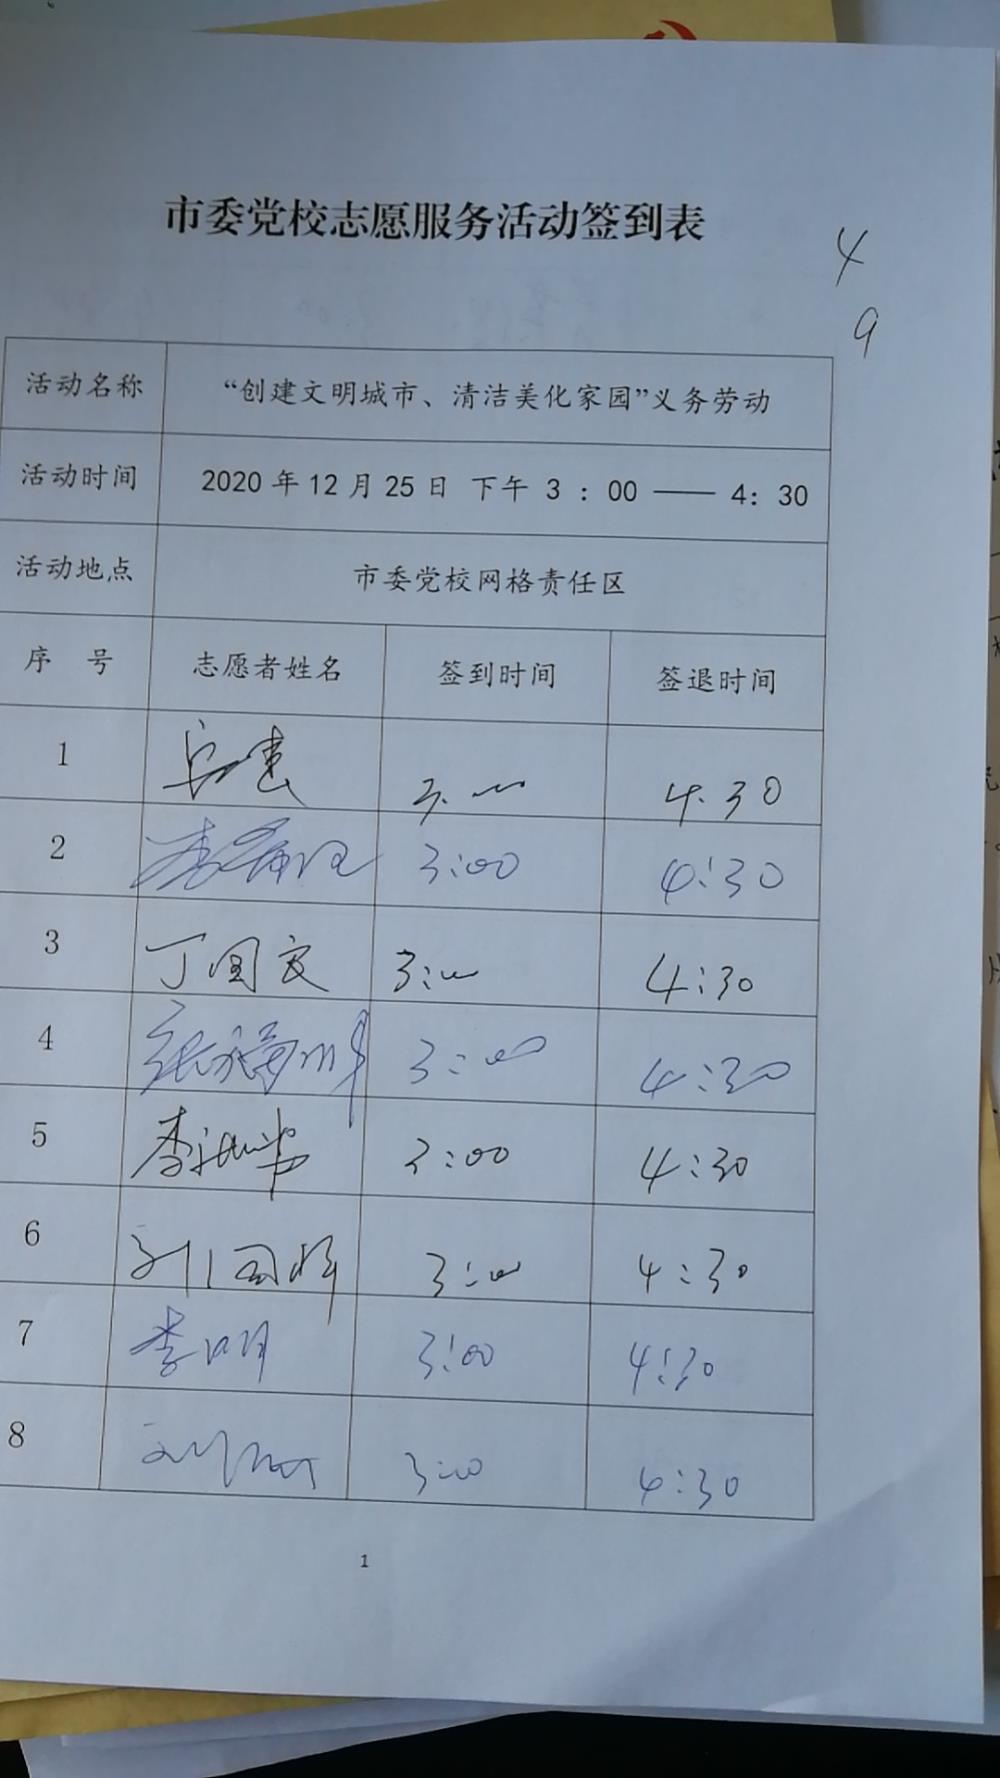 市委党校志愿服务活动签到表
4
9
活动名称 “创建文明城市、清洁美化家园”义务劳动
活动时间 2020 年 12 月 25 日 下午 3 : 00 —— 4: 30
活动地点 市委党校网格责任区
序 号 志愿者姓名 签到时间 签退时间
1 3:00 4:30
2 3:00 4:30
3 丁国文 3:00 4:30
4 3:00 4:30
5 李 3:00 4:30
6 刘国 3:00 4:30
7 李明 3:00 4:30
8 刘 3:00 4:30
1